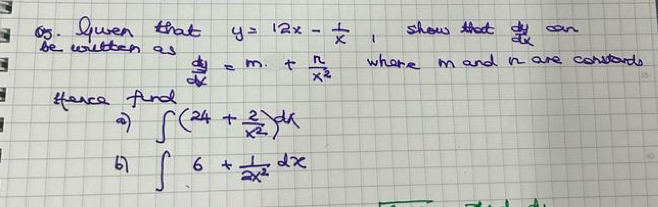 Q5. Given that y = 12x - 1/x, show that dy/dx can
be written as
dy/dx = m. + n/x² where m and n are constants
Hence find
a) ∫(24 + 2/x²)dx
b) ∫ 6 + 1/2x² dx